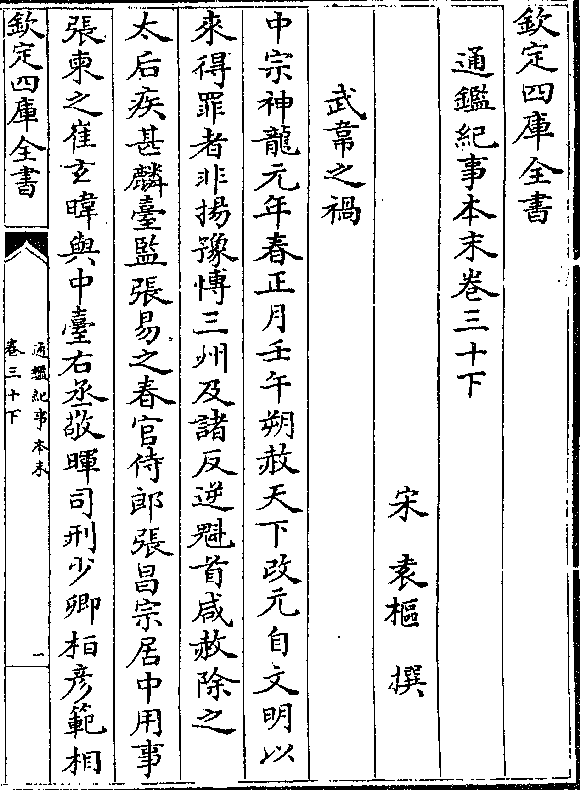 欽定四庫全書
通鑑紀事本末卷三十下
宋 袁樞 撰
武韋之禍
中宗神龍元年春正月壬午朔赦天下改元自文明以
來得罪者非揚豫愽三州及諸反逆魁首咸赦除之
太后疾甚麟臺監張易之春官侍郎張昌宗居中用事
張柬之崔玄暐與中臺右丞敬暉司刑少卿柏彥範相
欽定四庫全書
通鑑紀事本末
卷三十下
一